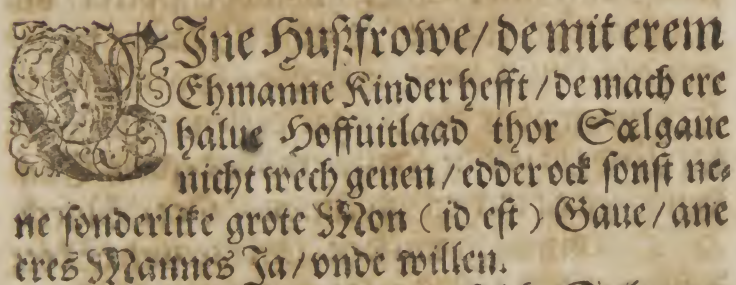 EJne Hußfrowe / de mit erem
Ehmanne Kinder hefft / de mach ere
halue Hoffuitlaad thor Sœlgaue
nicht wech geuen / edder ock sonst ne⸗
ne sonderlike grote Mon ( id est ) Gaue / ane
eres Mannes Ja / vnde willen.